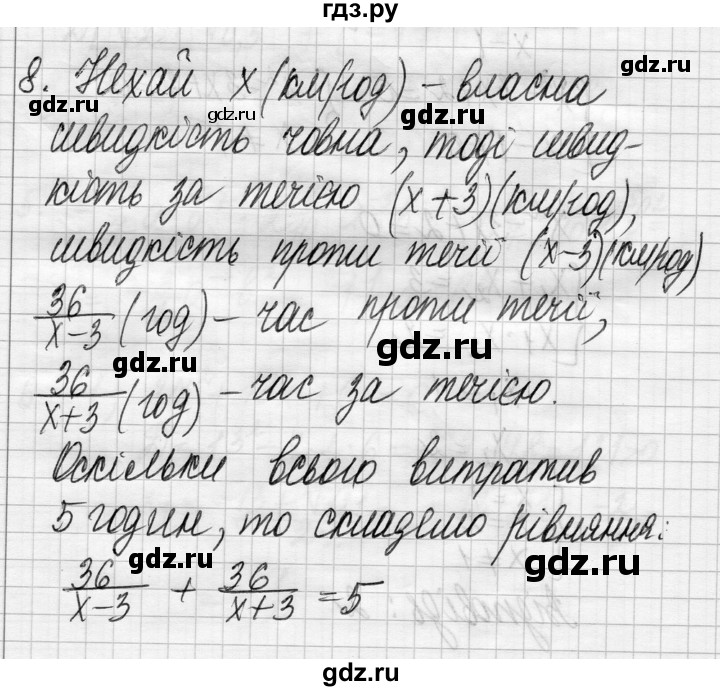 гдз.ру
8. Нехай x (км/год) – власна
швидкість човна, тоді швид-
кість за течією (x+3)(км/год),
швидкість проти течії (x–3)(км/год)
36/(x–3) (год) – час проти течії,
36/(x+3) (год) – час за течією.
Оскільки всього витратив
5 годин, то складемо рівняння:
36/(x–3) + 36/(x+3) = 5
gdz.ru
gdz.ru
gdz.ru
gdz.ru
gdz.ru
gdz.ru
gdz.ru
gdz.ru
gdz.ru
gdz.ru
gdz.ru
gdz.ru